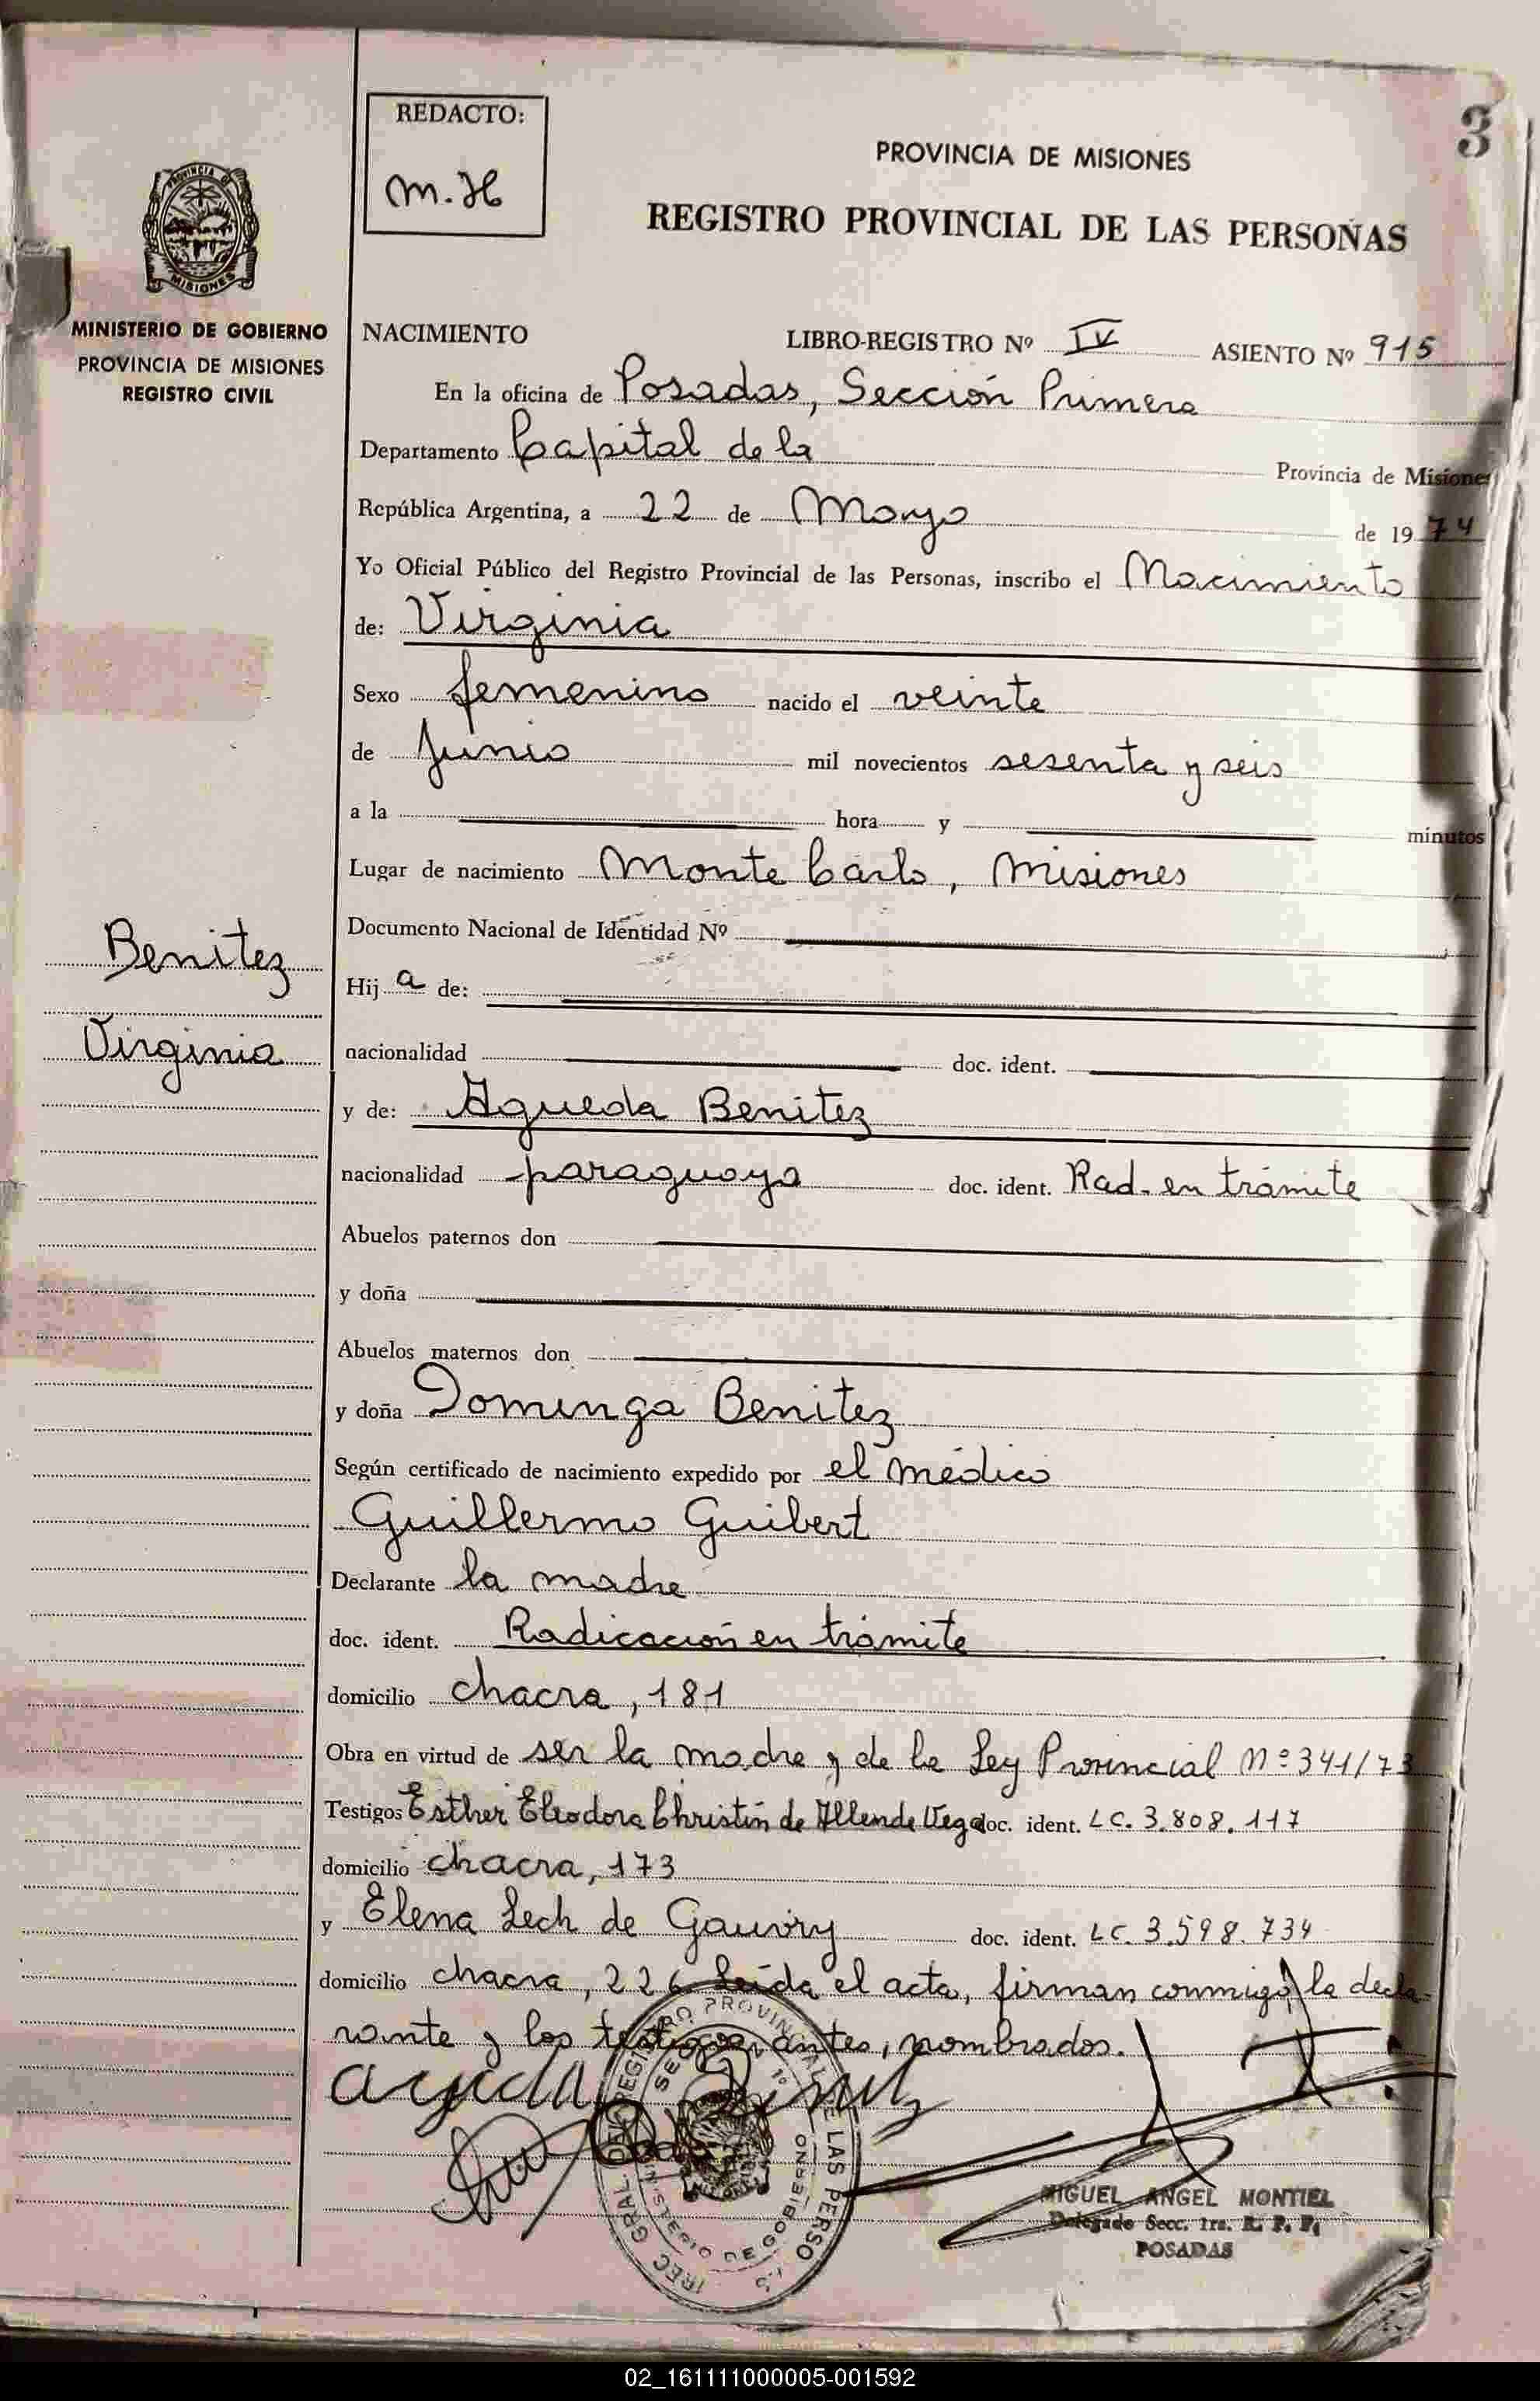 3
REDACTO:
M. H
PROVINCIA DE MISIONES
REGISTRO PROVINCIAL DE LAS PERSONAS
PROVINCIA DE
MISIONES
MINISTERIO DE GOBIERNO
PROVINCIA DE MISIONES
REGISTRO CIVIL
NACIMIENTO LIBRO-REGISTRO Nº IV ASIENTO Nº 915
En la oficina de Posadas, Sección Primera
Departamento Capital de la Provincia de Misiones
República Argentina, a 22 de Mayo de 1974
Yo Oficial Público del Registro Provincial de las Personas, inscribo el Nacimiento
de: Virginia
Sexo femenino nacido el veinte
de Junio mil novecientos sesenta y seis
a la hora y minutos
Lugar de nacimiento Monte Carlo, Misiones
Documento Nacional de Identidad Nº
Benitez
Hija de:
Virginia
nacionalidad doc. ident.
y de: Agueda Benitez
nacionalidad paraguaya doc. ident. Rad. en trámite
Abuelos paternos don
y doña
Abuelos maternos don
y doña Dominga Benitez
Según certificado de nacimiento expedido por el médico
Guillermo Guibert
Declarante la madre
doc. ident. Radicación en trámite
domicilio chacra, 181
Obra en virtud de ser la madre y de la Ley Provincial Nº 341/73
Testigos Esther Eleodora Christín de Allende Vega doc. ident. LC. 3.808.117
domicilio chacra, 173
y Elena Lech de Gauvry doc. ident. LC. 3.598.734
domicilio chacra, 226 Leída el acta, firman conmigo, la decla-
rante y los testigos antes, nombrados.
MIGUEL ANGEL MONTIEL
Delegado Secc. 1ra. R. P. P.
POSADAS
MINISTERIO DE GOBIERNO
02_161111000005-001592